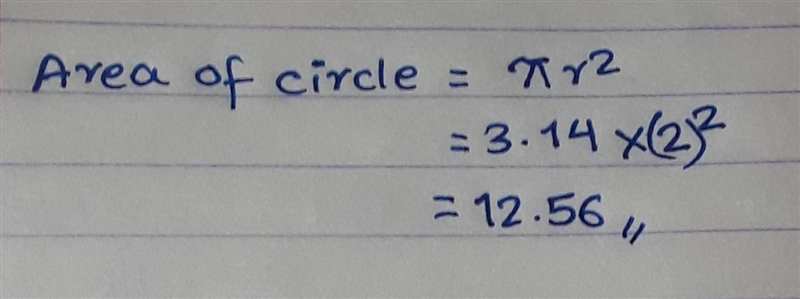 Area of circle = πr²
= 3.14 ×(2)²
= 12.56 〃